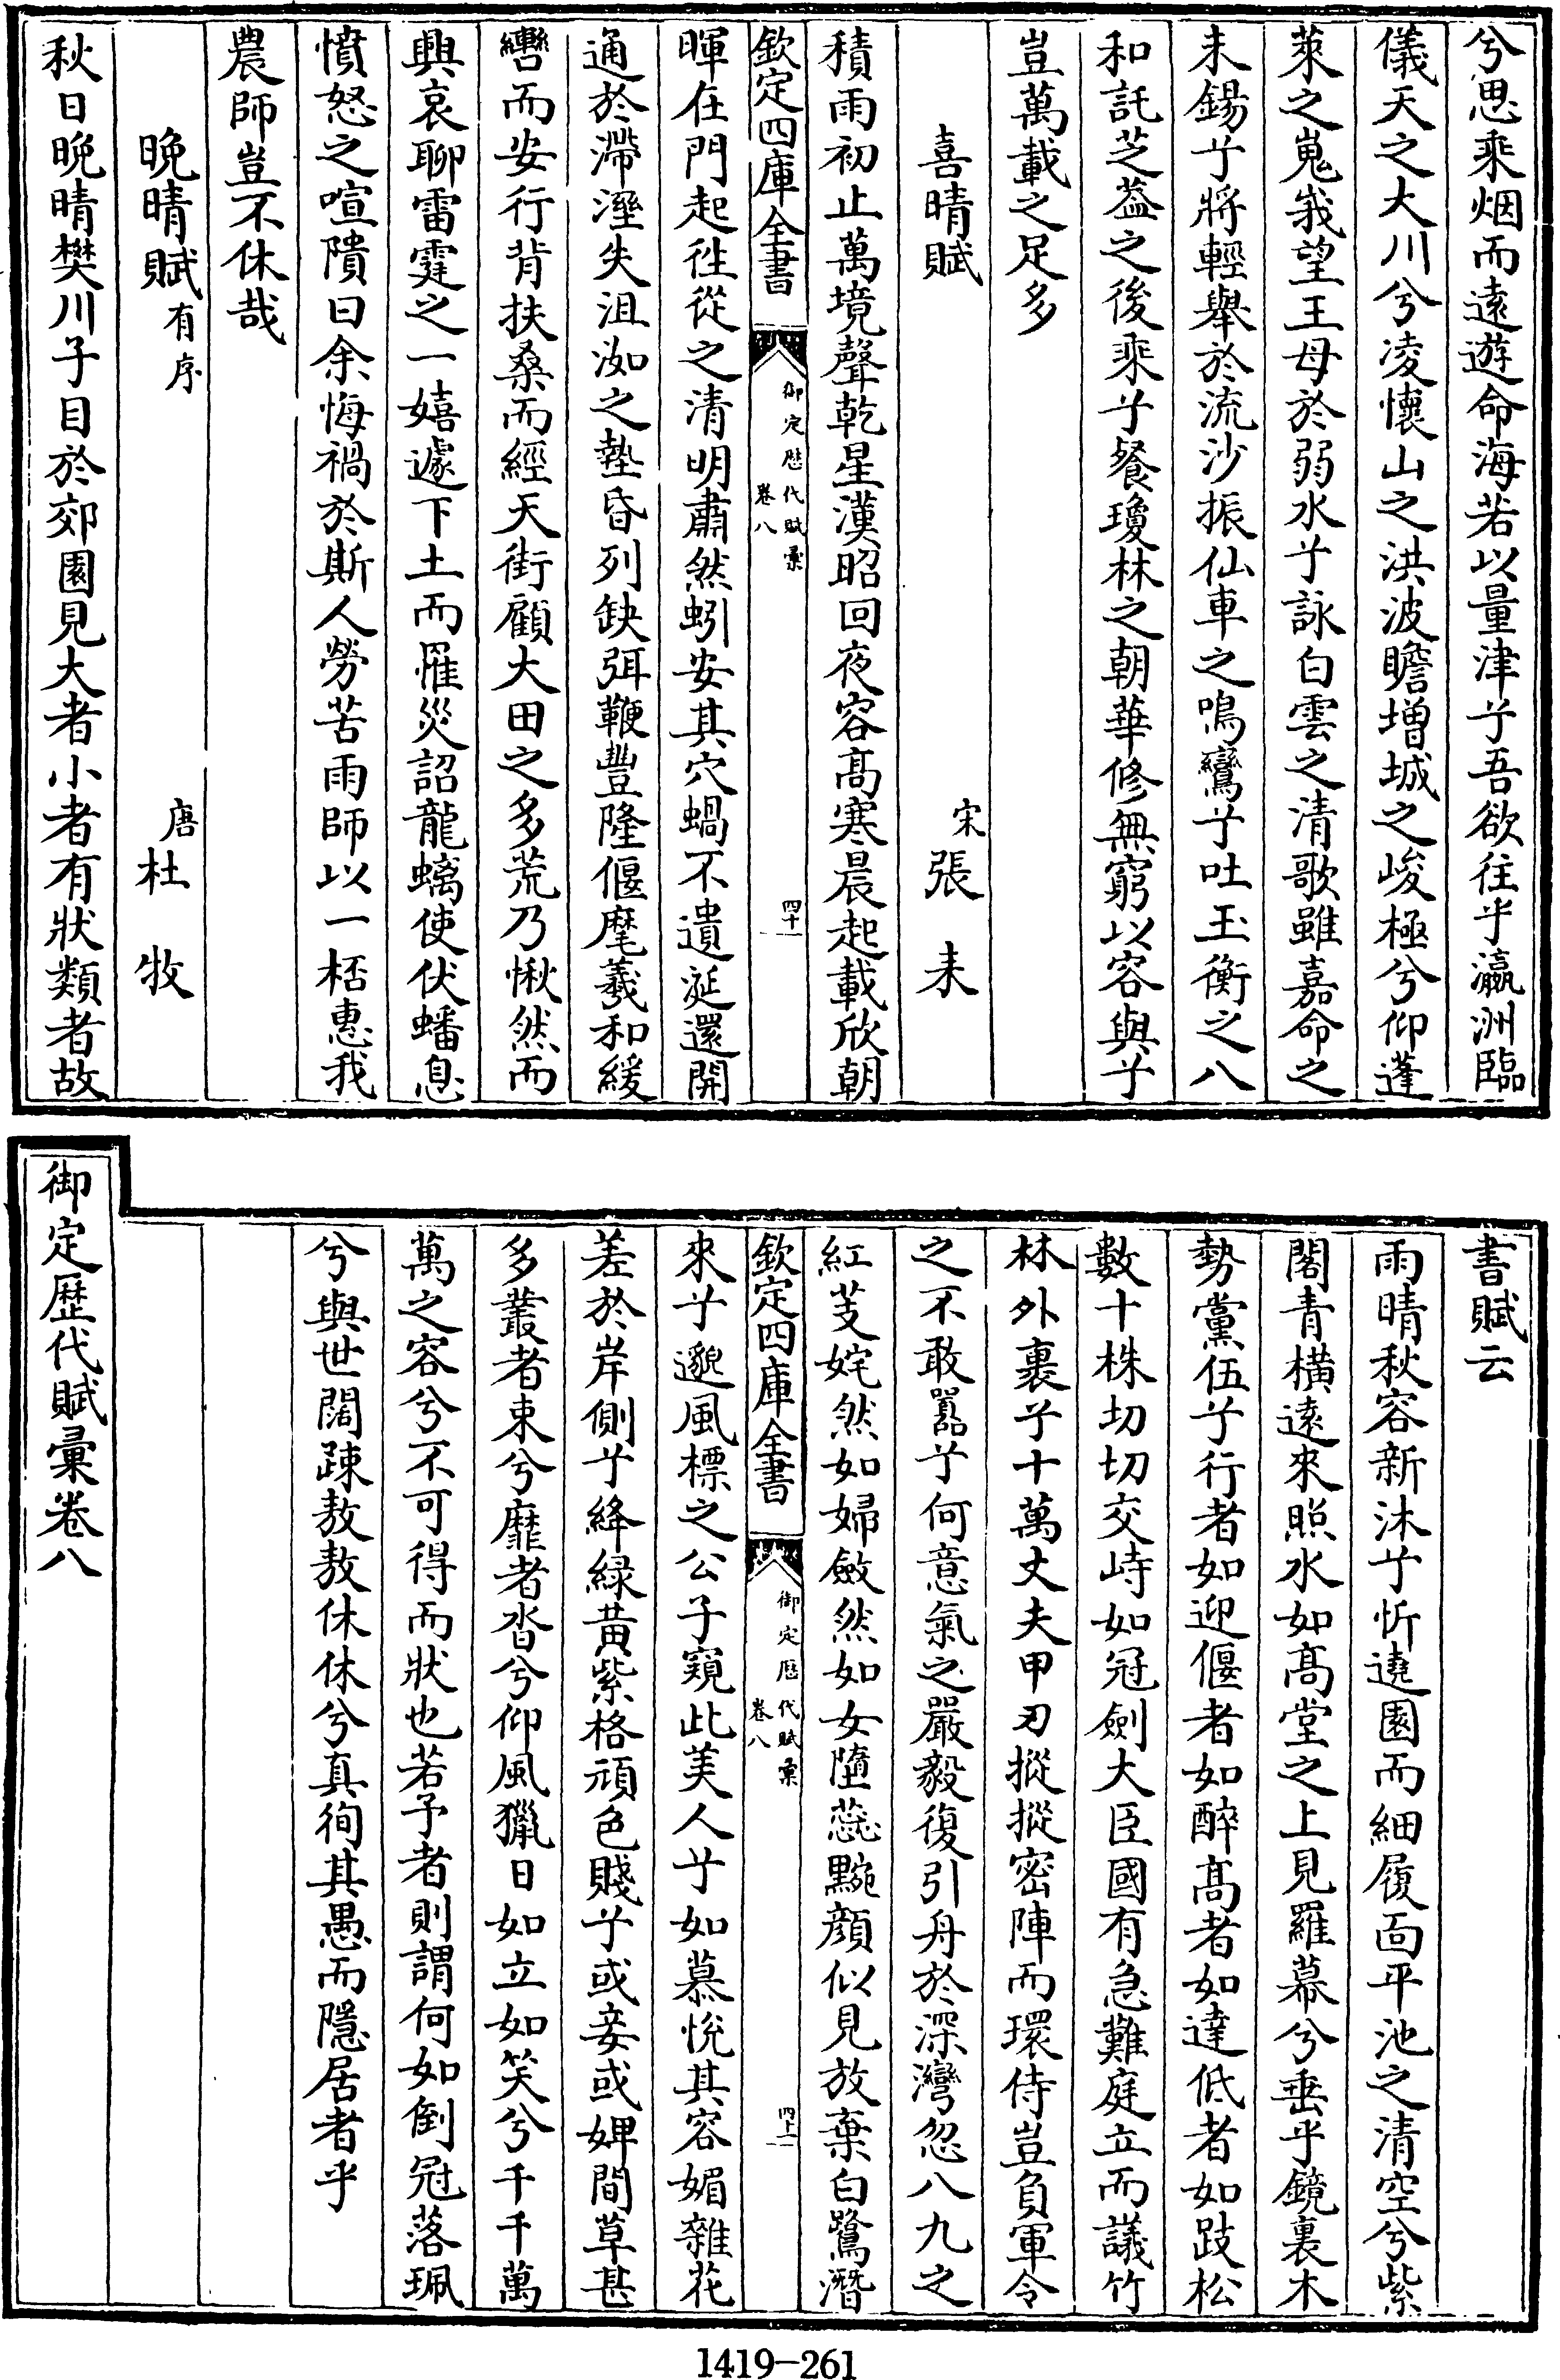 兮思乘烟而遠遊命海若以量津兮吾欲往乎瀛洲臨
儀天之大川兮凌懷山之洪波瞻增城之峻極兮仰蓬
萊之嵬峩望王母於弱水兮詠白雲之清歌雖嘉命之
未錫兮將輕舉於流沙振仙車之鳴鸞兮吐玉衡之八
和託芝葢之後乘兮餐瓊林之朝華修無窮以容與兮
豈萬載之足多
喜晴賦
宋張耒
積雨初止萬境聲乾星漢昭回夜容髙寒晨起載欣朝
欽定四庫全書
御定歴代賦彙
卷八
四十
暉在門起徃從之清明肅然蚓安其穴蝸不遺涎還開
通於滯溼失沮洳之墊昏列缺弭鞭豐隆偃麾羲和緩
轡而安行背扶桑而經天街顧大田之多荒乃愀然而
興哀聊雷霆之一嬉遽下土而罹災詔龍螭使伏蟠息
憤怒之喧隤曰余悔禍於斯人勞苦雨師以一桮惠我
農師豈不休哉
晩晴賦有序
唐杜牧
秋日晩晴樊川子目於郊園見大者小者有狀類者故
書賦云
雨晴秋容新沐兮忻遶園而細履靣平池之清空兮紫
閣青横遠來照水如髙堂之上見羅幕兮垂乎鏡裏木
勢黨伍兮行者如迎偃者如醉髙者如達低者如跂松
數十株切切交峙如冠劍大臣國有急難庭立而議竹
林外裹兮十萬丈夫甲刃摐摐密陣而環侍豈負軍令
之不敢囂兮何意氣之嚴毅復引舟於深灣忽八九之
紅芰姹然如婦斂然如女墮蕊黦顔似見放棄白鷺潛
欽定四庫全書
御定歴代賦彙
卷八
四十一
來兮邈風標之公子窺此美人兮如慕悅其容媚雜花
差於岸側兮絳緑黄紫格頑色賤兮或妾或婢間草甚
多叢者束兮靡者杳兮仰風獵日如立如笑兮千千萬
萬之容兮不可得而狀也若予者則謂何如倒冠落珮
兮與世闊踈敖敖休休兮真徇其愚而隱居者乎
御定歴代賦彙卷八
1419-261